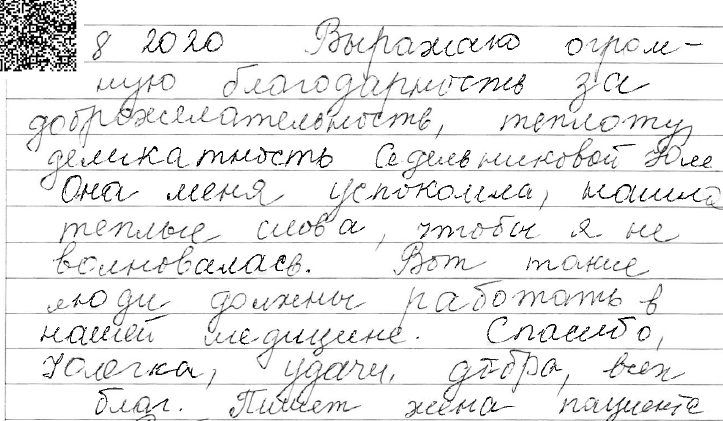 8 2020 Выражаю огром-
ную благодарность за
доброжелательность, теплоту,
деликатность Седельниковой Юле
Она меня успокоила, нашла
теплые слова, чтобы я не
волновалась. Вот такие
люди должны работать в
нашей медицине. Спасибо,
Юлечка, удачи, добра, всех
благ. Пишет жена пациента